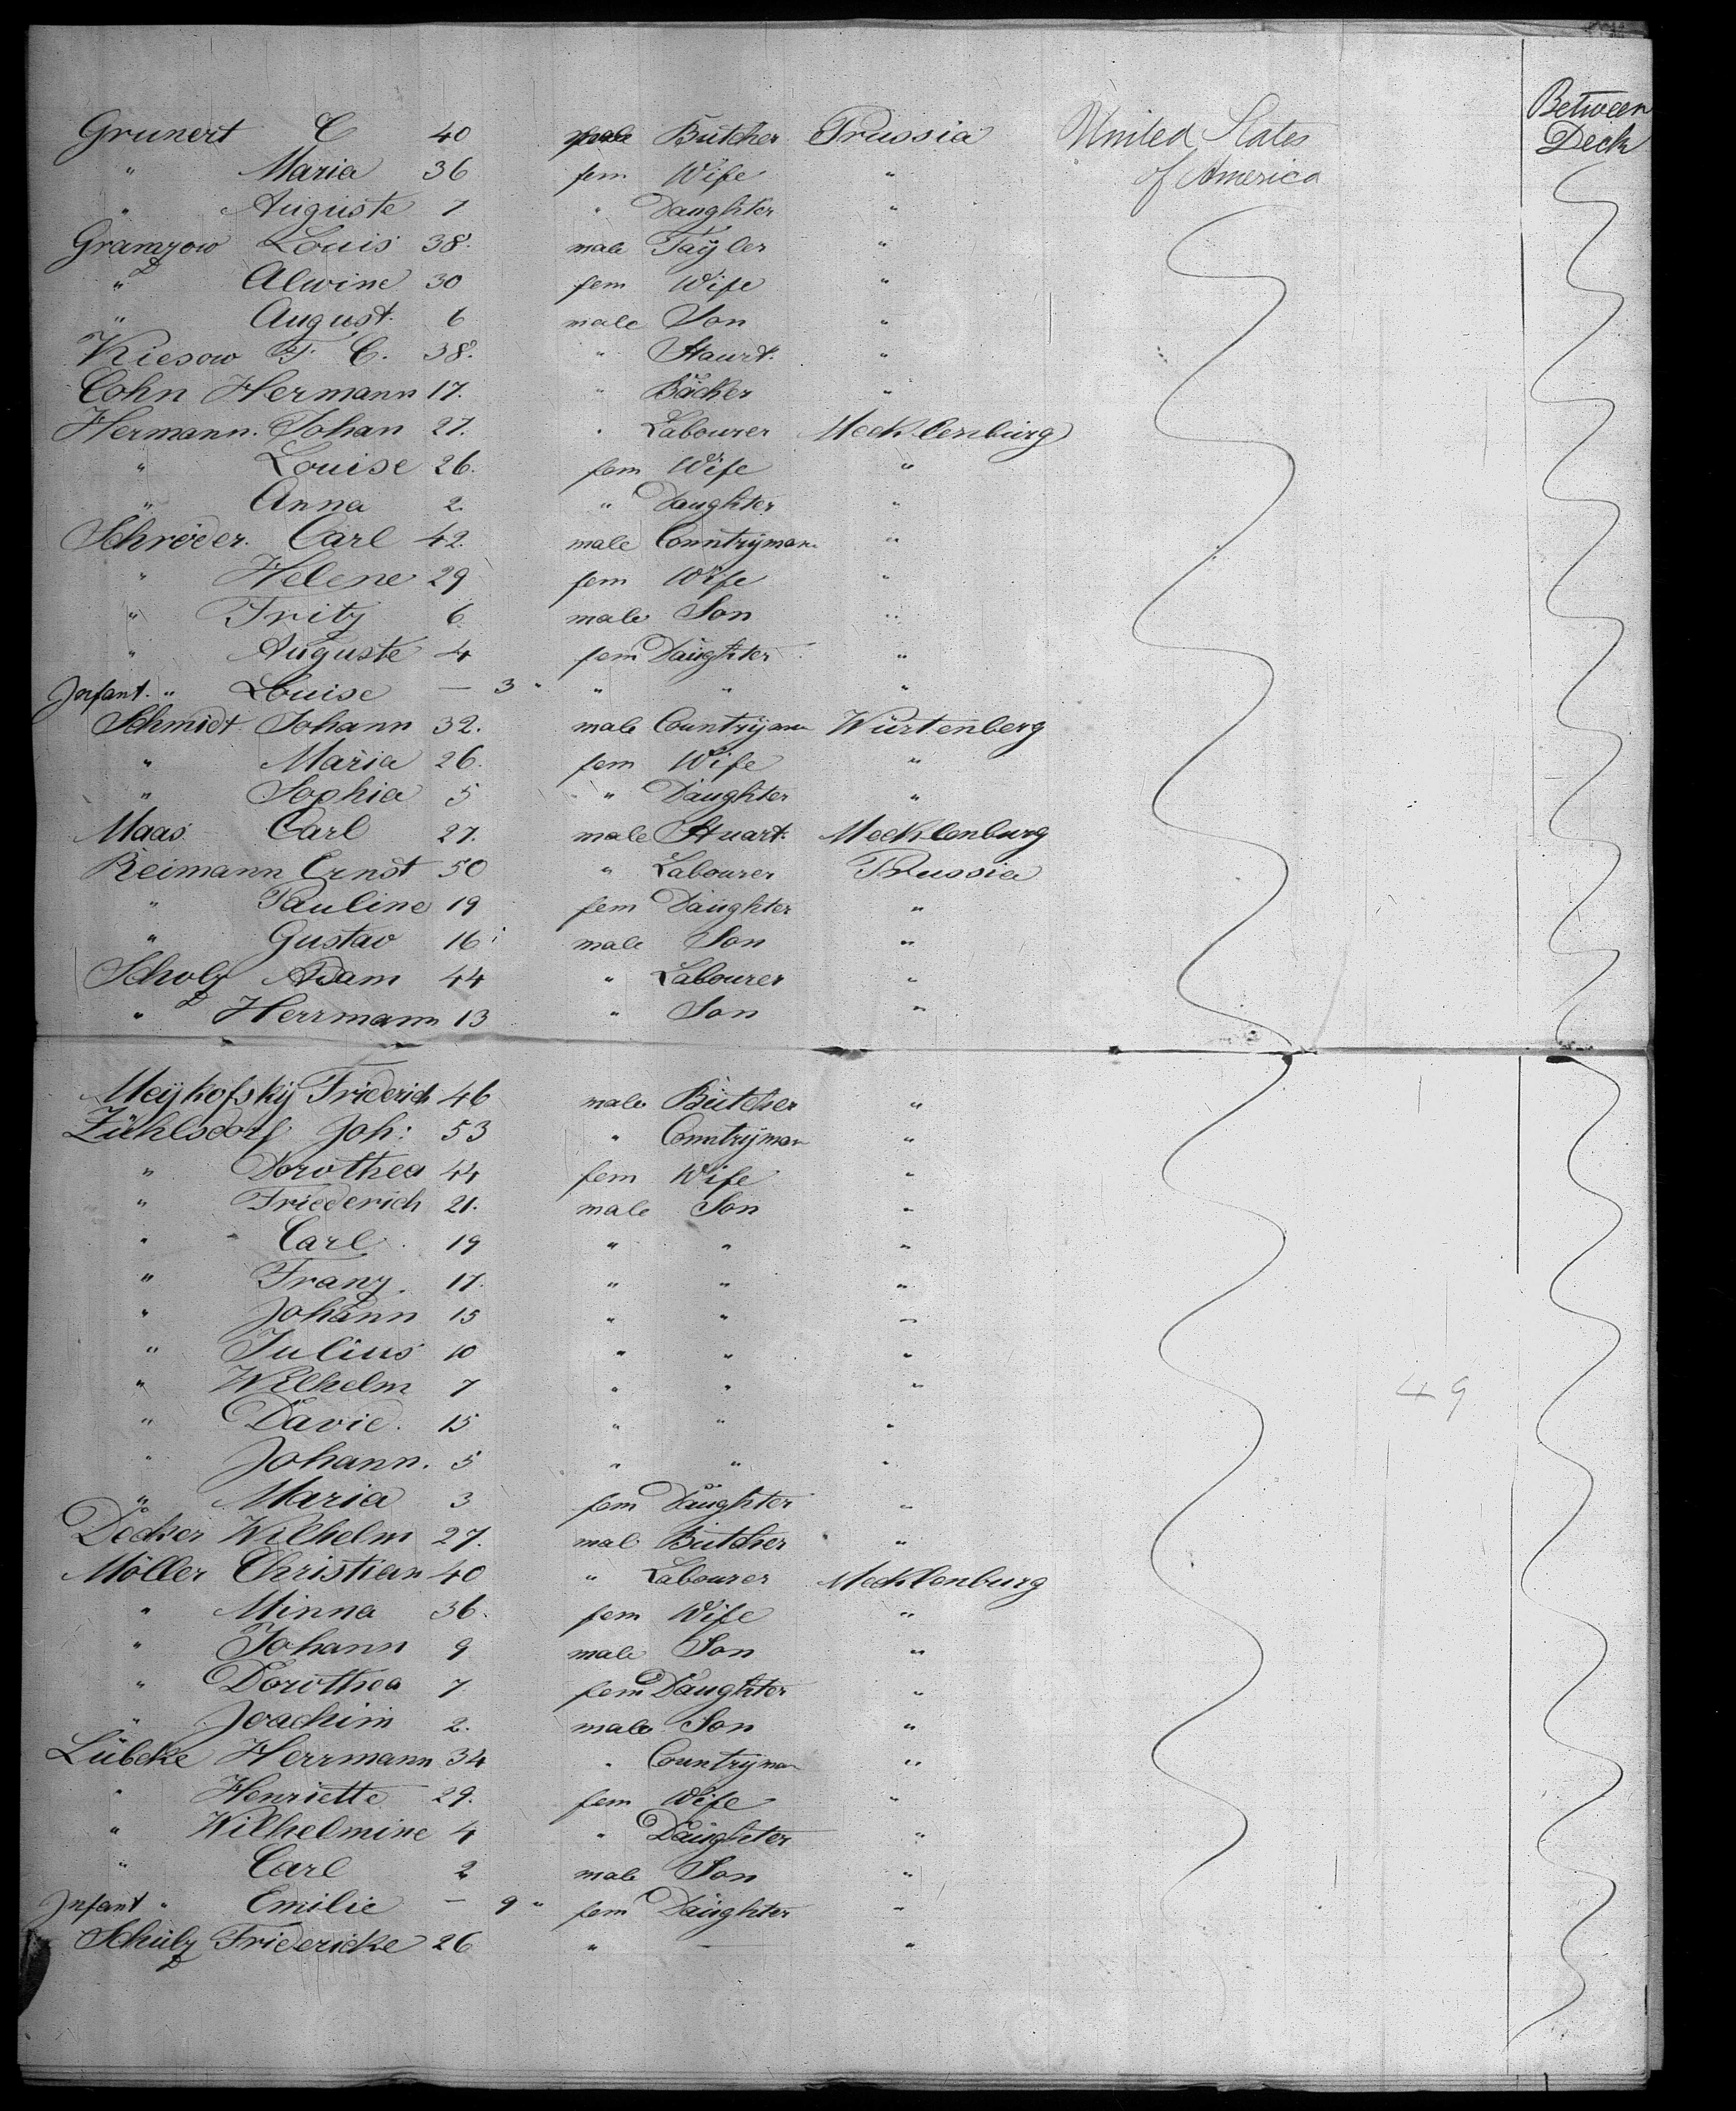 Between
Deck
Grunert C 40 male Butcher Prussia United States
" Maria 36 fem Wife " of America
" Auguste 7 " Daughter "
Gramzow Louis 38. male Tayler "
" Alwine 30 fem Wife "
" August. 6 male Son "
Kiesow F. C. 38. " Stuart. "
Cohn Hermann 17. " Bäcker "
Hermann. Johan 27. " Labourer Mecklenburg
" Louise 26. fem Wife "
" Anna 2. " Daughter "
Schröder. Carl 42. male Countryman "
" Helene 29 fem Wife "
" Fritz 6. male Son "
" Auguste 4 fem Daughter "
Infant. " Louise — 3 " " " "
Schmidt Johann 32. male Countryman Würtenberg
" Maria 26. fem Wife "
" Sophia 5 " Daughter "
Maas Carl 27. male Stuart. Mecklenburg
Reimann Ernst 50 " Labourer Prussia
" Pauline 19 fem Daughter "
" Gustav 16 male Son "
Scholz Adam 44 " Labourer "
" Herrmann 13 " Son "
Friderich 46 male Butcher "
Zühlsdorf Joh: 53 " Countryman "
" Dorothea 44 fem Wife "
" Friederich 21. male Son "
" Carl. 19 " " "
" Franz. 17. " " "
" Johann 15 " " "
" Julius 10 " " "
" Wilhelm 7 " " " 49
" David. 15 " " "
" Johann. 5 " " "
" Maria 3 fem Daughter "
Decker Wilhelm 27. mal Butcher "
Möller Christian 40 " Labourer Mecklenburg
" Minna 36. fem Wife "
" Johann 9 male Son "
" Dorothea 7 fem Daughter "
" Joachim 2. male Son "
Lübcke Herrmann 34 " Countryman "
" Henriette 29. fem Wife "
" Wilhelmine 4 " Daughter "
" Carl 2 male Son "
Infant " Emilie — 9 " fem Daughter "
Schulz Fridericke 26 " — "